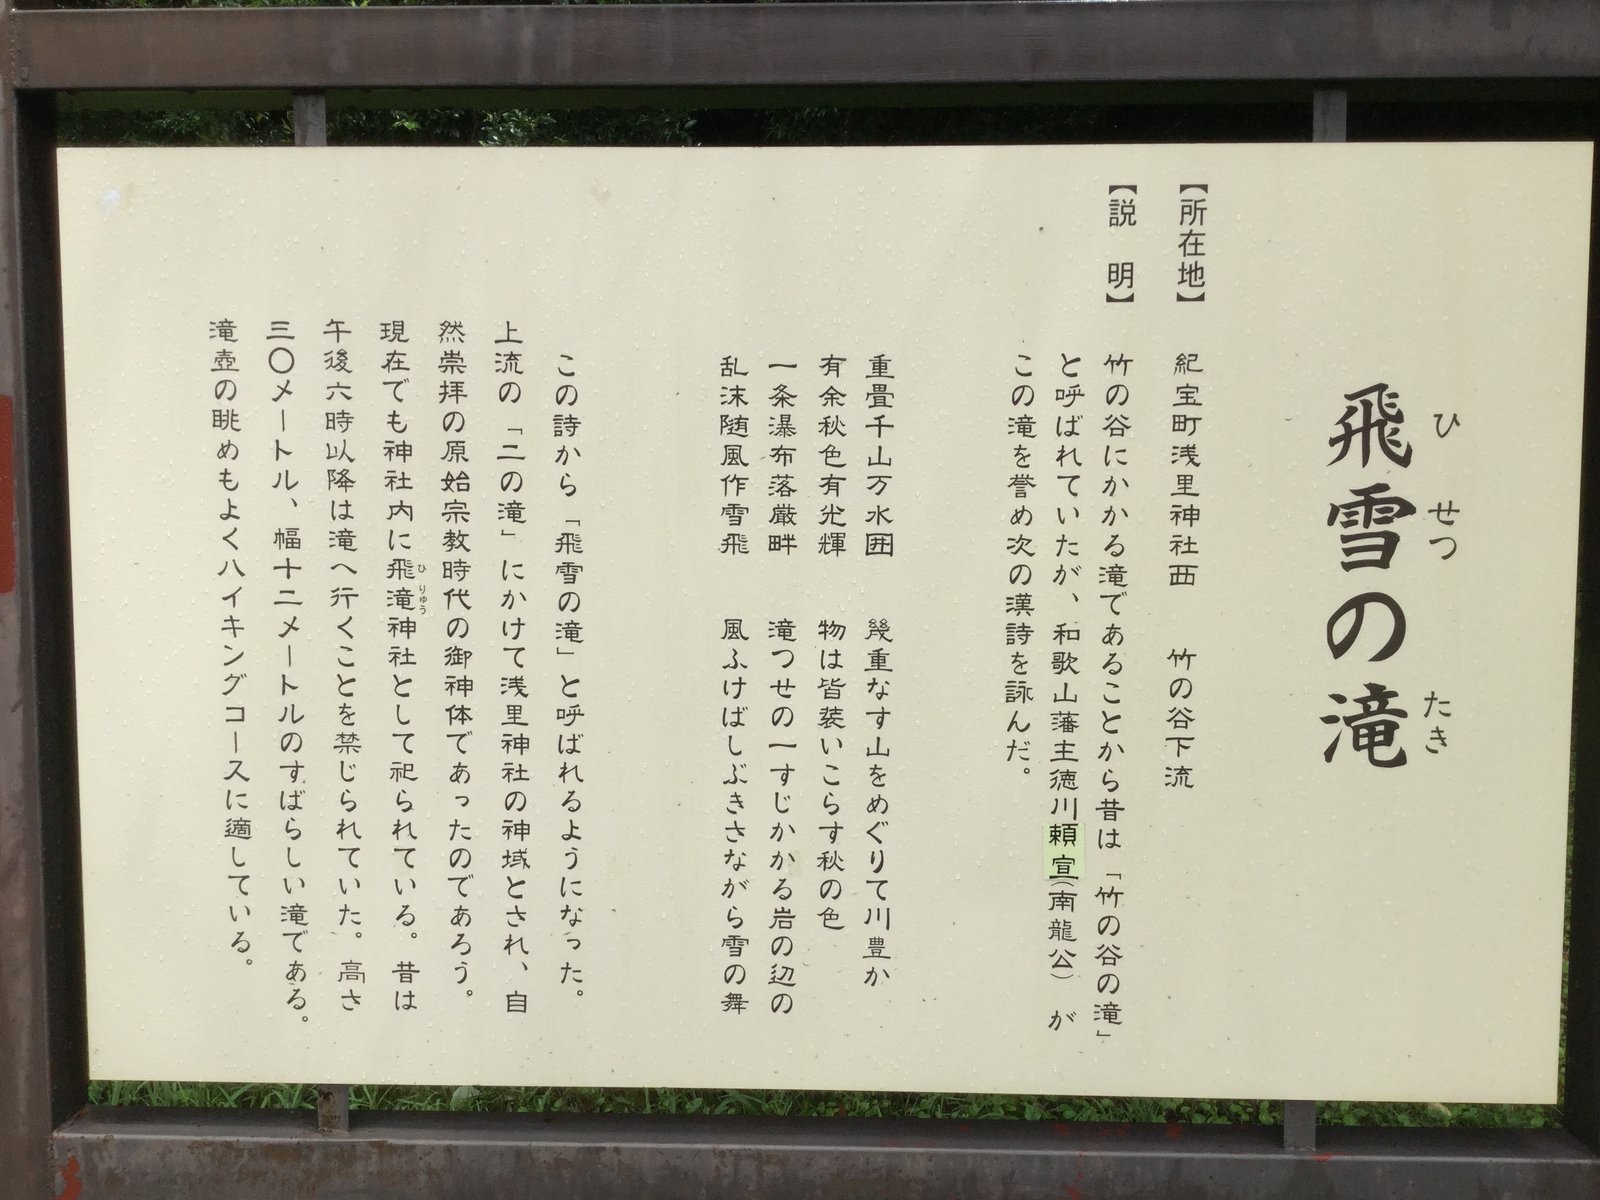 飛雪の滝
ひ せつ たき
【所在地】 紀宝町浅里神社西 竹の谷下流
【説 明】 竹の谷にかかる滝であることから昔は「竹の谷の滝」
と呼ばれていたが、和歌山藩主徳川頼宣(南龍公)が
この滝を誉め次の漢詩を詠んだ。
重畳千山万水囲 幾重なす山をめぐりて川豊か
有余秋色有光輝 物は皆装いこらす秋の色
一条瀑布落厳畔 滝つせの一すじかかる岩の辺の
乱沫随風作雪飛 風ふけばしぶきさながら雪の舞
この詩から「飛雪の滝」と呼ばれるようになった。
上流の「二の滝」にかけて浅里神社の神域とされ、自
然崇拝の原始宗教時代の御神体であったのであろう。
現在でも神社内に飛滝神社として祀られている。昔は
ひ りゅう
午後六時以降は滝へ行くことを禁じられていた。高さ
三〇メートル、幅十二メートルのすばらしい滝である。
滝壺の眺めもよくハイキングコースに適している。